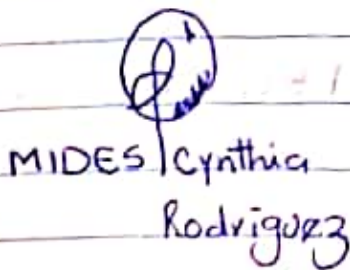 MIDES Cynthia
Rodriguez